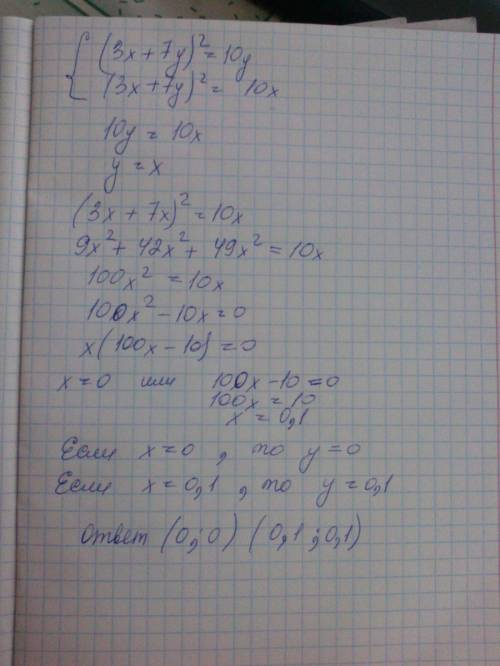 (3x + 7y)² = 10y
(3x + 7y)² = 10x
10y = 10x
y = x
(3x + 7x)² = 10x
9x² + 42x² + 49x² = 10x
100x² = 10x
100x² - 10x = 0
x(100x - 10) = 0
x = 0 или 100x - 10 = 0
100x = 10
x = 0,1
Если x = 0, то y = 0
Если x = 0,1, то y = 0,1
Ответ (0; 0) (0,1; 0,1)